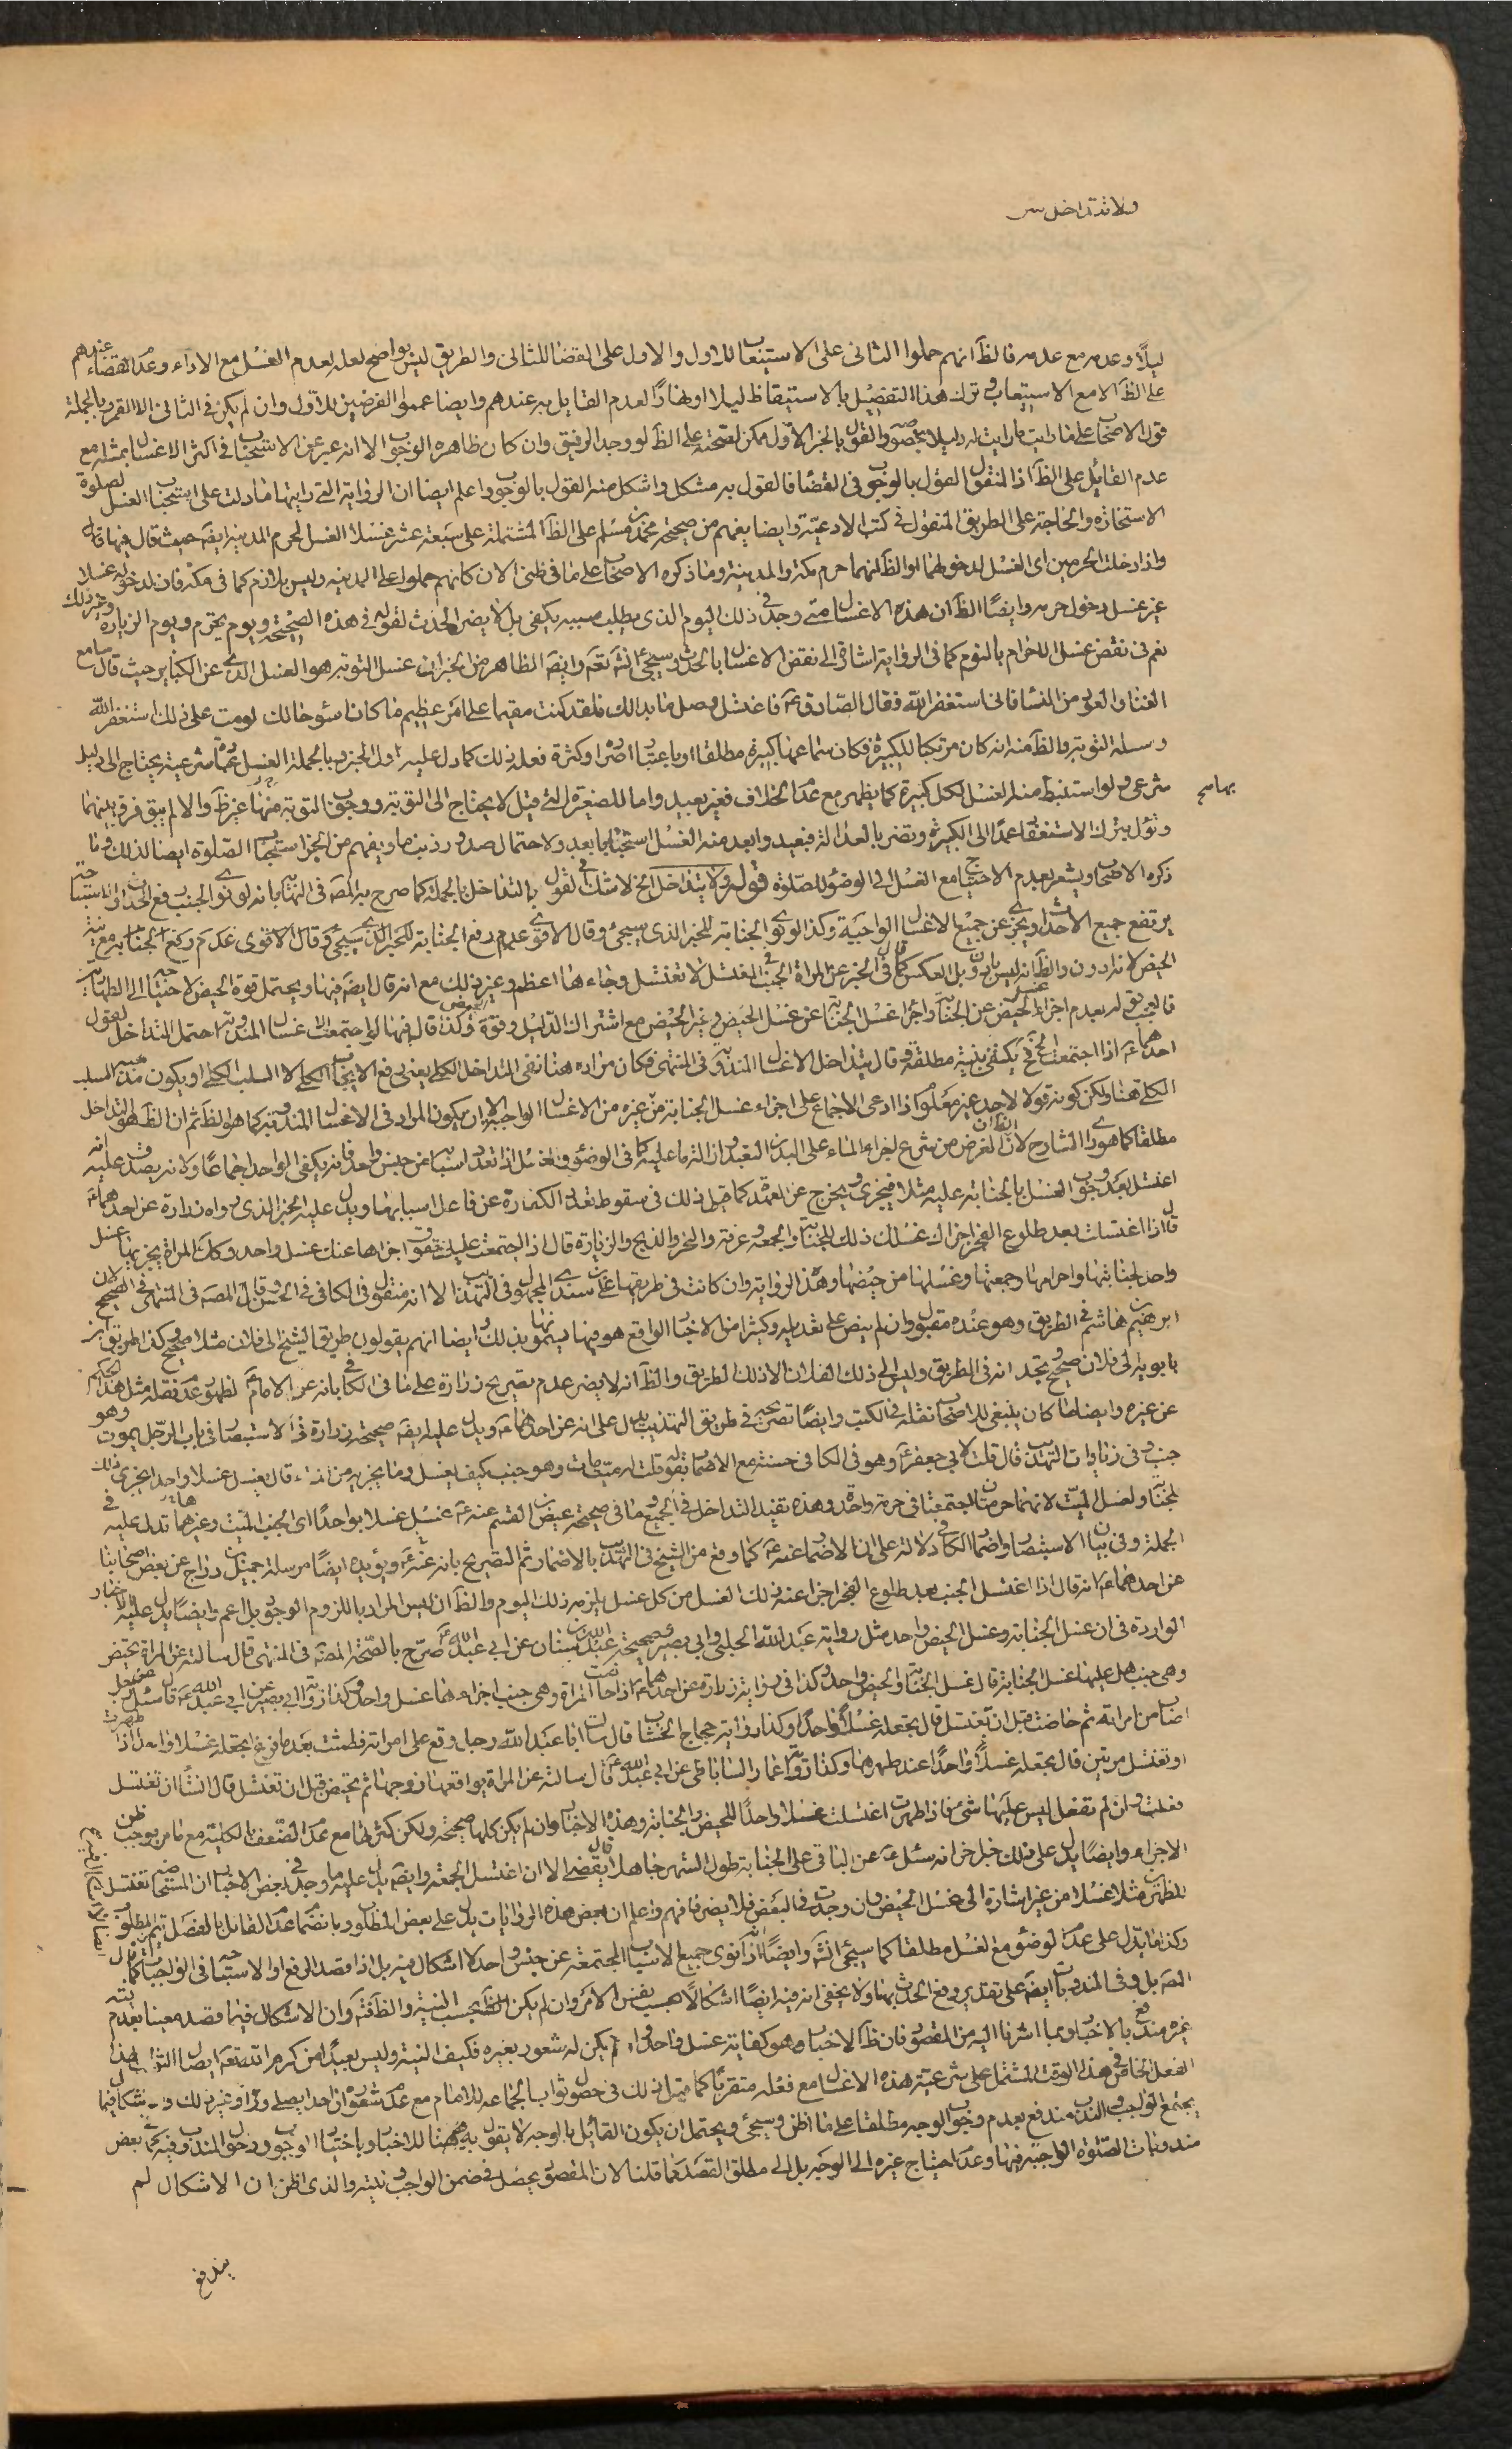 ولا تتداخل
ليلًا وعدمه مع عدمه فالظ انهم حملوا الثانى على الاستيعاب للاول والاول على القضا للثانى والطريق ليس بواضح لعله لعدم الغسل مع الاداء وعدم القضاء عندهم
على الظ الا مع الاستيعاب وترك هذا التفصيل بالاستيقاظ ليلا او نهارا لعدم القايل به عندهم وايضا عمموا الفرضين للاول وان لم يكن فى الثانى الا القمر وبالجملة
قول الاصحاب على ما رايت ما رايت له دليلا بخصوصه والقول بالخبر الاول ممكن لصحته على الظ لو وجد الرفيق وان كان ظاهره الوجوب الا انه عبر عن الاستحباب فى اكثر الاغسال بمثله مع
عدم القائل على الظ اذ المنقول القول بالوجوب فى القضا فالقول به مشكل واشكل منه القول بالوجوب واعلم ايضا ان الرواية التى رايتها ما دلت على استحباب الغسل لصلوة
الاستخارة والحاجة على الطريق المنقول فى كتب الادعية وايضا يفهم من صحيحة محمد بن مسلم على الظ المشتملة على سبعة عشر غسلا الغسل لحرم المدينة ايضه حيث قال فيها قال
واذا دخلت الحرمين اى الغسل لدخولهما او الظ انهما حرم مكة والمدينة وما ذكره الاصحاب على ما فى ظنى الان كانهم حملوا على المدينة وليس بلازم كما فى مكة فان لدخوله غسلا
غير غسل دخول حرمه وايضًا الظ ان هذه الاغسال متى وجد فى ذلك اليوم الذى يطلب بسببه يكفى بل لا يضر الحدث لقوله فى هذه الصحيحة ويوم تحرم ويوم الزيارة وغير ذلك
نعم فى نقض غسل الاحرام بالنوم كما فى الرواية اشارة الى نقض الاغسال بالحدث وسيجئ انشه تعه وايضه الظاهر من الخبر ان غسل التوبة هو الغسل الذى عن الكبائر حيث قال سامع
الغنا والعود من النسا فانى استغفر الله فقال الصادق عه فاغتسل وصل ما بدا لك فلقد كنت مقيما على امر عظيم ما كان اسوء حالك لو مت على ذلك استغفر الله
وسله التوبة والظ منه انه كان مرتكبا للكبيرة فكان سماعها كبيرة مطلقا او باعتبار اصراره وكثرة فعله ذلك كما دل عليه اول الخبر وبالجملة الغسل عما شرعية يحتاج الى دليل
شرعى ولو استنبط منه الغسل لكل كبيرة كما يظهر مع عدم الخلاف فغير بعيد واما للصغيرة التى قيل لا يحتاج الى التوبة ووجوب التوبة منها غير ظ والا لم يبق فرق بينهما
بهامح
وتؤل بترك الاستغفار عمدًا الى الكبيرة وتضر بالعدالة فبعيد وابعد منه الغسل استحبابا بعد ولاحتمال صدور ذنب ما ويفهم من الخبر استحباب الصلوة ايضا لذلك وما
ذكره الاصحاب ويشعر بعدم الاحتياج مع الغسل الى الوضؤ للصلوة قوله ولا يتداخل الخ لا شك فى القول بالتداخل بالجملة كما صرح به المصه فى النهاية بانه لو نوى الجنب رفع الحدث او الاستباحة
يرتفع جميع الاحداث ويجزى عن جميع الاغسال الواجبة وكذا لو نوى الجنابة للخبر الذى سيجئ وقال الاقوى عدم رفع الجنابة للخبر الذى سيجئ وقال الاقوى عدم رفع الجنابة مع نية
الحيض لانه ادون والظ انه ليس بادون بل العكس كما قال فى الخبر عن المراة الجنب فى المغتسل لا تغتسل وجاءها اعظم وغير ذلك مع انه قال ايضه فيها ويحتمل قوة الحيض لاحتياجه الى الطهارتين
فالعجب قوله بعدم اجزاء غسل الحيض عن الجنابة واجزاء غسل الجنابة عن غسل الحيض وغير الحيض مع اشتراك الدليل وقوة الحيض وكذا قال فيها لو اجتمعت الاغسال المندوبة احتمل التداخل لقول
احدهما عه اذا اجتمعت الخ فيكفى بنية مطلقة وقال يتداخل الاغسال المندوبة فى المنتهى فكان مراده هنا نفى التداخل الكلى يعنى رفع الايجاب الكلى لا السلب الكلى او يكون مذهبه السلب
الكلى هنا ولكن كونه قولا لاحد غير معلوم اذا ادعى الاجماع على اجزاء غسل الجنابة من غيره من الاغسال الواجبة الا ان يكون المراد فى الاغسال المندوبة كما هو الظ ثم ان الظ هو التداخل
مطلقا كما هو راى الشارح لان الظ ان الغرض من شرع اجراء الماء على البدن التعبد اذ التزما عليه كما فى الوضؤ وغسل اذا تعدد اسبابه من جنس واحد فانه يكفى الواحد اجماعًا ولانه يصدق عليه انه
اغتسل بعد وجوب الغسل بالجنابة عليه مثلا فيجزى ويخرج عن العهدة كما قيل ذلك فى سقوط تعدد الكفارة عن فاعل اسبابها ويدل عليه الخبر الذى رواه زرارة عن احدهما عه
قال اذا اغتسلت بعد طلوع الفجر اجزاك غسلك ذلك للجنابة والجمعة وعرفة والنحر والذبح والزيارة قال اذ اجتمعت عليك حقوق اجزاها عنك غسل واحد وكك المراة يجزيها غسل
واحد لجنابتها واحرامها وجمعتها وغسلها من حيضها وهذه الرواية وان كانت فى طريقها على بن سندى المجهول فى التهذيب الا انه منقول فى الكافى فى الحسن وقال المصه فى المنتهى فى الصحيح لان
ابرهيم بن هاشم فى الطريق وهو عنده مقبول وان لم ينص على تعديله وكثيرا من الاخبار الواقع هو فيها يسمونها بذلك وايضا انهم يقولون طريق الشيخ الى فلان مثلا صحيح وكذا طريق ابن
بابويه الى فلان صحيح وتجد انه فى الطريق وليس الى ذلك الفلان الا ذلك الطريق والظ انه لا يضر عدم تصريح زرارة على ما فى الكافى بانه عن الامام عه لظهور عدم نقله مثل هذا الحكم
عن غيره وايضا لما كان ينبغى للاصحاب نقله فى الكتب وايضًا تصريحه فى طريق التهذيب يدل على انه عن احدهما عه ويدل عليه ايضه صحيحة زرارة فى الاستبصار فى باب الرجل يموت وهو
جنب وفى زيادات التهذيب قال قلت لابى جعفر عه وهو فى الكافى حسنة مع الاضمار بقوله قلت له ميت مات وهو جنب كيف يغسل وما يجزيه من الماء قال يغسل غسلا واحدا يجزى ذلك
لجنابته ولغسل الميت لانهما حرمتان اجتمعتا فى حرمة واحدة وهذه تفيد التداخل فى الجميع وما فى صحيحة عيص بن القسم عنه عه يغسل غسلا واحدًا اى الجنب الميت وغيرها تدل عليه فى
الجملة وفى بيان الاستبصار واضمار الكافى دلالة على ان الاضمار عنه عه كما وقع من الشيخ فى التهذيب بالاضمار ثم التصريح بانه عنه عه ويؤيده ايضًا مرسلة جميل بن دراج عن بعض اصحابنا
عن احدهما عه انه قال اذا اغتسل الجنب بعد طلوع الفجر اجزا عنه ذلك الغسل من كل غسل يلزمه ذلك اليوم والظ ان ليس المراد باللزوم الوجوب بل اعم وايضًا يدل عليه الاخبار
الواردة فى ان غسل الجنابة وغسل الحيض واحد مثل رواية عبد الله الحلبى وابى بصير وصحيحة عبد الله بن سنان عن ابى عبد الله عه صرح بالصحة المصه فى المنتهى قال سالته عن المراة تحيض
وهى جنب هل عليها غسل الجنابة قال غسل الجنابة والحيض واحد وكذا فى رواية زرارة عن احدهما عه اذا حاضت المراة وهى جنب اجزاءهما غسل واحد وكذا رواية ابى بصير عن ابى عبد الله عه قال سئل عن رجل
اصاب من امراته ثم حاضت قبل ان تغتسل قال تجعله غسلًا واحدًا وكذا رواية حجاج الخشاب قال سالت ابا عبد الله رجل وقع على امراته فطمثت بعد ما فرغ اتجعله غسلا واحدا اذا طهرت
او تغتسل مرتين قال تجعله غسلًا واحدًا عند طهرها وكذا رواية عمار الساباطى عن ابى عبد الله عه قال سالته عن المراة يواقعها زوجها ثم تحيض قبل ان تغتسل قال ان شاءت ان تغتسل
فعلت وان لم تفعل ليس عليها شئ فاذا طهرت اغتسلت غسلا واحدًا للحيض والجنابة وهذه الاخبار وان لم يكن كلها صحيحة ولكن كثرتها مع عدم الضعف بالكلية مع ما مر يوجب ظن
الاجزاء وايضًا يدل على ذلك خبر اخر انه سئل عه عن الباقى على الجنابة طول الشهر جاهلا قال يقضى الا ان اغتسل الجمعة وايضه يدل عليه ما وجد فى بعض الاخبار ان المستحاضة تغتسل
للظهرين مثلا غسلا من غير اشارة الى غسل الحيض وان وجدت فى البعض فلا يضر فافهم واعلم ان بعض هذه الروايات يدل على بعض المطلوب وبانضمام عدم القائل بالفصل يتم المطلوب
وكذا ما يدل على عدم الوضؤ مع الغسل مطلقا كما سيجئ انشه وايضًا اذا نوى جميع الاسباب المجتمعة عن جنس واحد لا اشكال فيه بل اذا قصد الرفع او الاستباحة فى الواجبات كما قال
المصه بل وفى المندوبات ايضه على تقدير رفع الحدث بها ولا يخفى ان فيه ايضًا اشكالًا بحسب نفس الامر وان لم يكن الظ بحسب النية والظ فته وان الاشكال فيما قصد معينا بعدم نيته
غيره مندفع بالاخبار وبما اشرنا اليه من المقصود فان ظ الاخبار وهو كفاية غسل واحد ولو لم يكن له شعور بغيره فكيف النية وليس بعيدا من كرم الله تعه ايصال الثواب لهذا
الفعل الخاص فى هذا الوقت المشتمل على شرعية هذه الاغسال مع فعله متقربًا كما قيل ذلك فى حصول ثواب الجماعة للامام مع عدم شعوره ان احدا يصلى وراءه وغير ذلك والاشكال فيما
يجتمع الواجب والندب مندفع بعدم وجوب الوجه مطلقا على ما اظن وسيجئ ويحتمل ان يكون القائل بالوجه لا يقول به ههنا للاخبار وباختيار الوجوب ودخول المندوب فيه كما فى بعض
مندوبات الصلوة الواجبة فيها وعدم احتياج غيره الى الوجه بل الى مطلق القصد لما قلنا لان المقصود يحصل فى ضمن الواجب ونيته والذى اظن ان الاشكال لم
يندفع